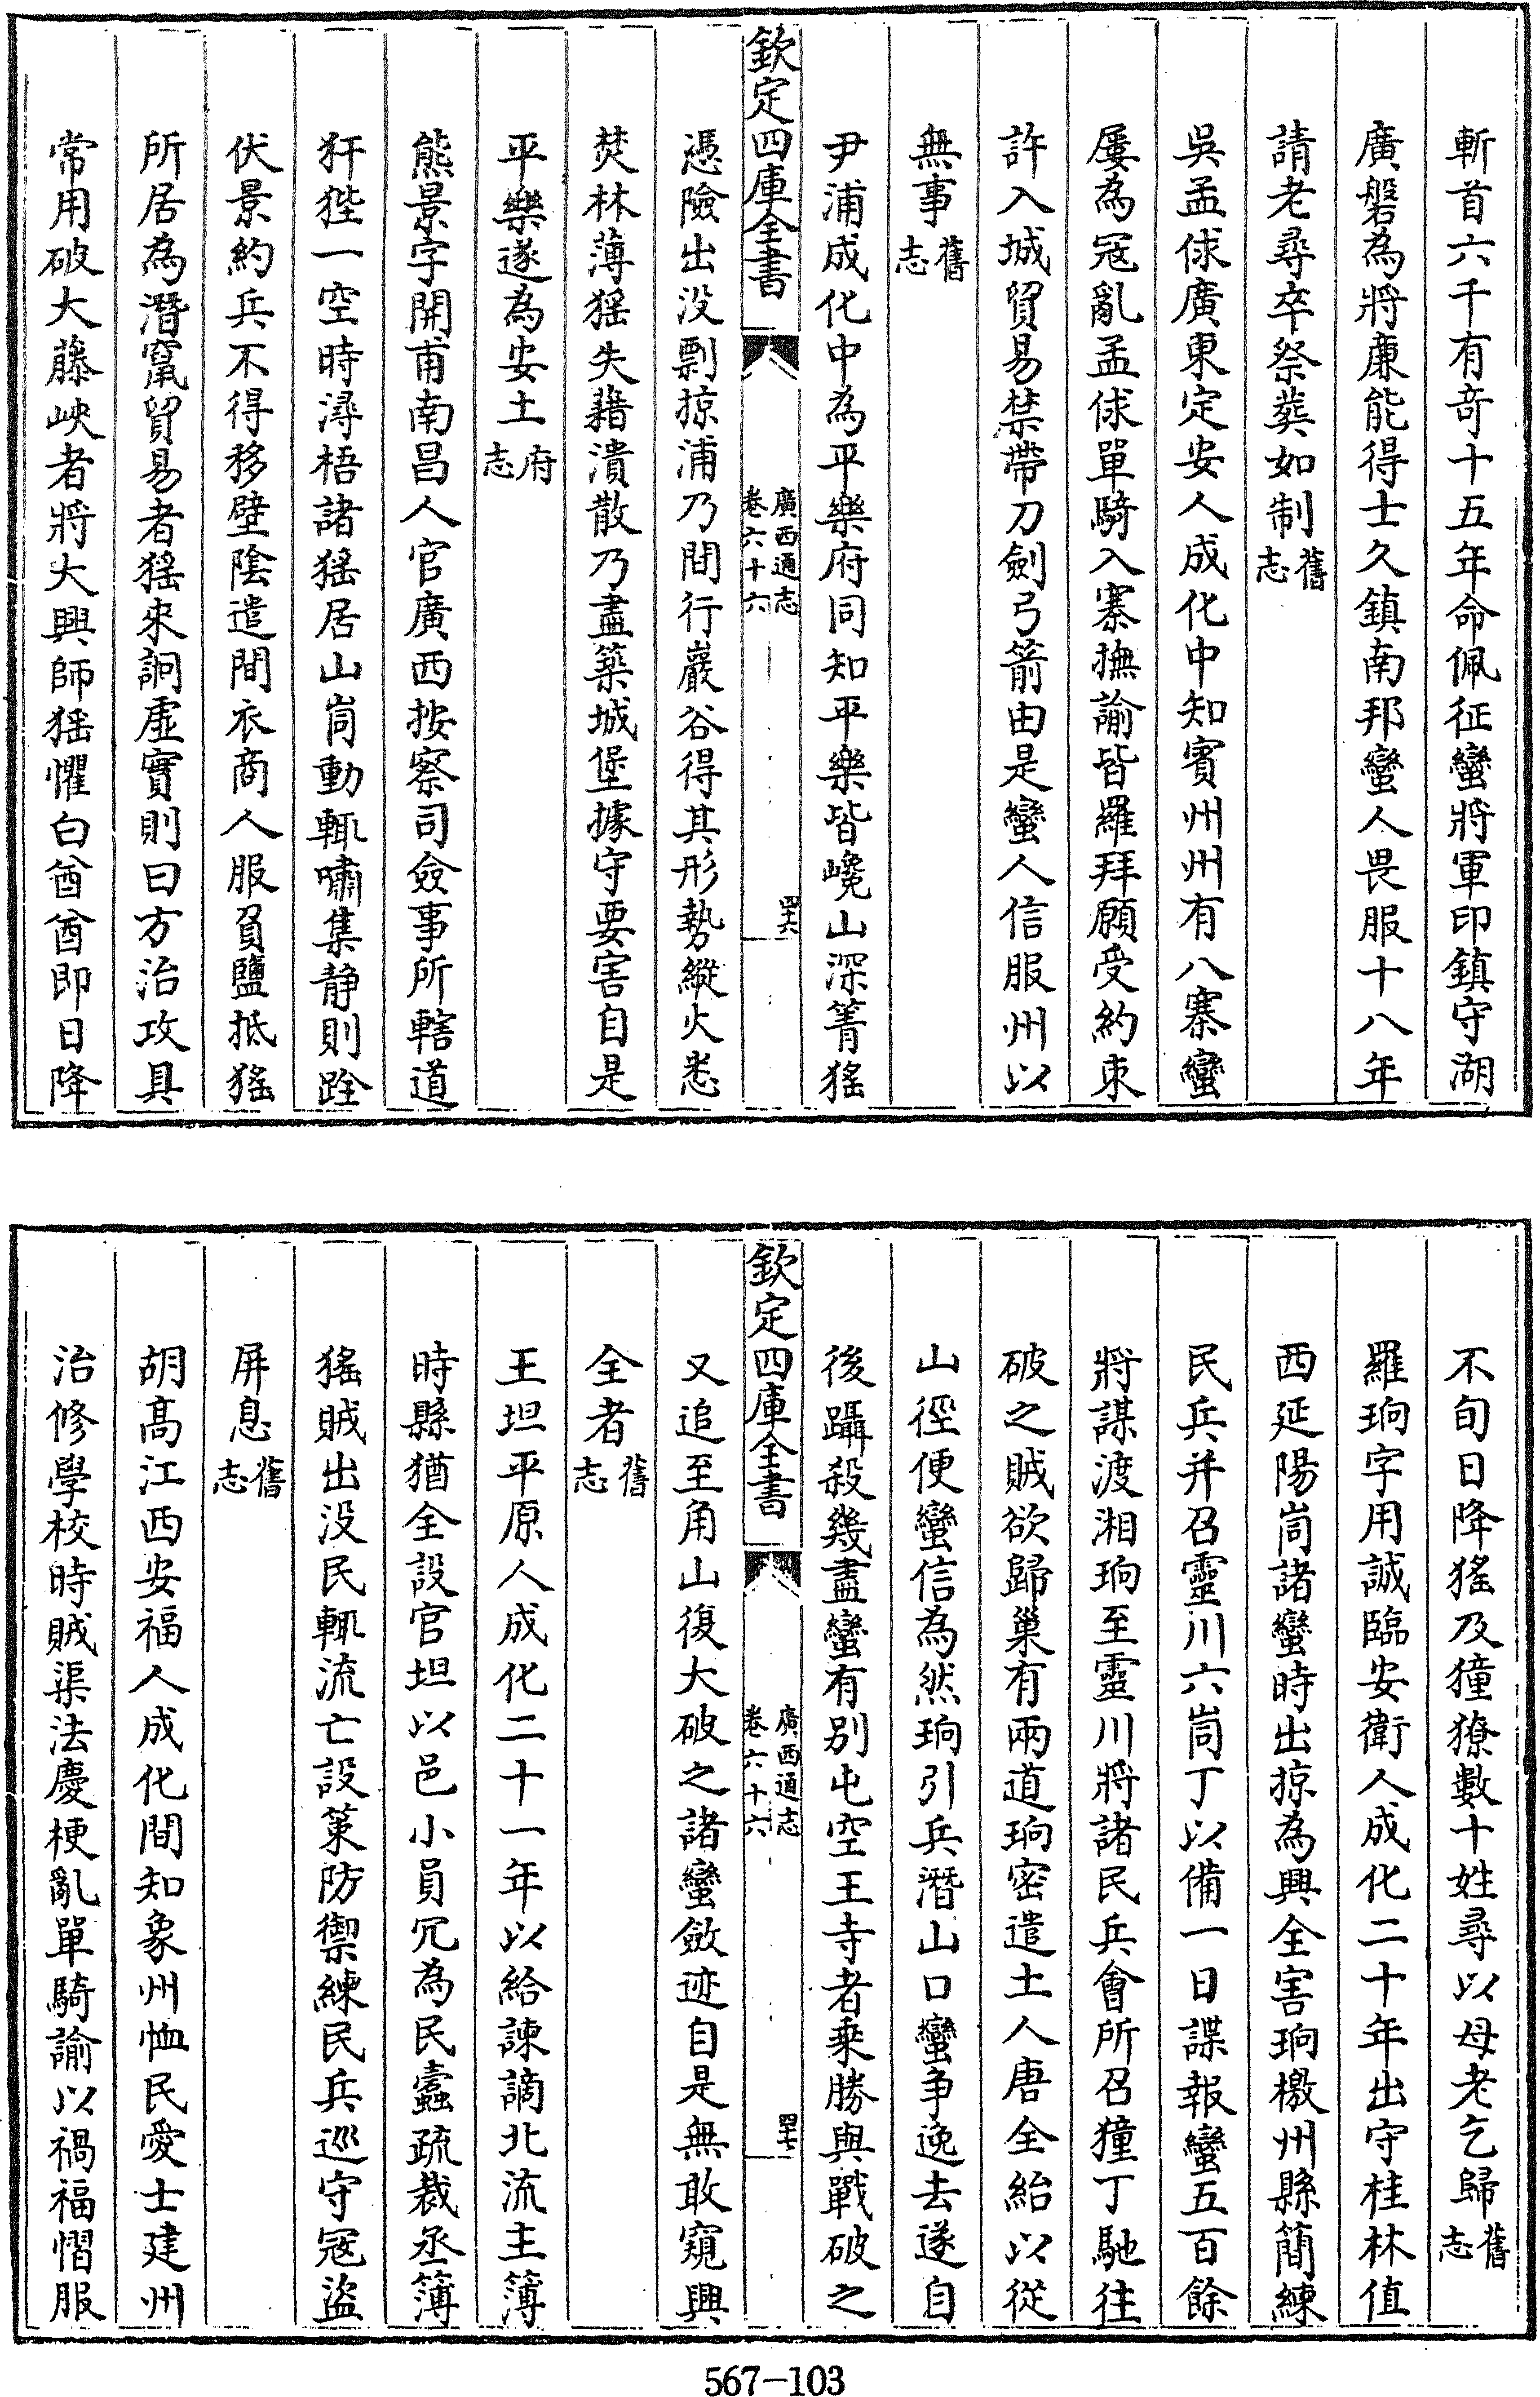 斬首六千有竒十五年命佩征蠻將軍印鎮守湖
廣磐為將亷能得士久鎮南邦蠻人畏服十八年
請老尋卒祭葬如制舊志
吳孟俅廣東定安人成化中知賓州州有八寨蠻
屢為冦亂孟俅單騎入寨撫諭皆羅拜願受約束
許入城貿易禁帶刀劍弓箭由是蠻人信服州以
無事舊志
尹浦成化中為平樂府同知平樂皆巉山深箐猺
欽定四庫全書
廣西通志
卷六十六
四十六
憑險出没剽掠浦乃間行巖谷得其形勢縱火悉
焚林薄猺失藉潰散乃盡築城堡據守要害自是
平樂遂為安土府志
熊景字開甫南昌人官廣西按察司僉事所轄道
犴狴一空時潯梧諸猺居山峝動輒嘯集静則跧
伏景約兵不得移壁陰遣間衣商人服負鹽抵猺
所居為潛竄貿易者猺來詗虚實則曰方治攻具
常用破大藤峽者將大興師猺懼白酋酋即日降
不旬日降猺及獞獠數十姓尋以母老乞歸舊志
羅珦字用誠臨安衛人成化二十年出守桂林值
西延陽峝諸蠻時出掠為興全害珦檄州縣簡練
民兵并召靈川六峝丁以備一日諜報蠻五百餘
將謀渡湘珦至靈川將諸民兵會所召獞丁馳往
破之賊欲歸巢有兩道珦密遣土人唐全紿以從
山徑便蠻信為然珦引兵潛山口蠻争逸去遂自
後躡殺幾盡蠻有别屯空王寺者乗勝與戰破之
欽定四庫全書
廣西通志
卷六十六
四十七
又追至角山復大破之諸蠻斂迹自是無敢窺興
全者舊志
王坦平原人成化二十一年以給諫謫北流主簿
時縣猶全設官坦以邑小員冗為民蠹疏裁丞簿
猺賊出没民輒流亡設策防禦練民兵巡守冦盜
屏息舊志
胡髙江西安福人成化間知象州恤民愛士建州
治修學校時賊渠法慶梗亂單騎諭以禍福慴服
567-103